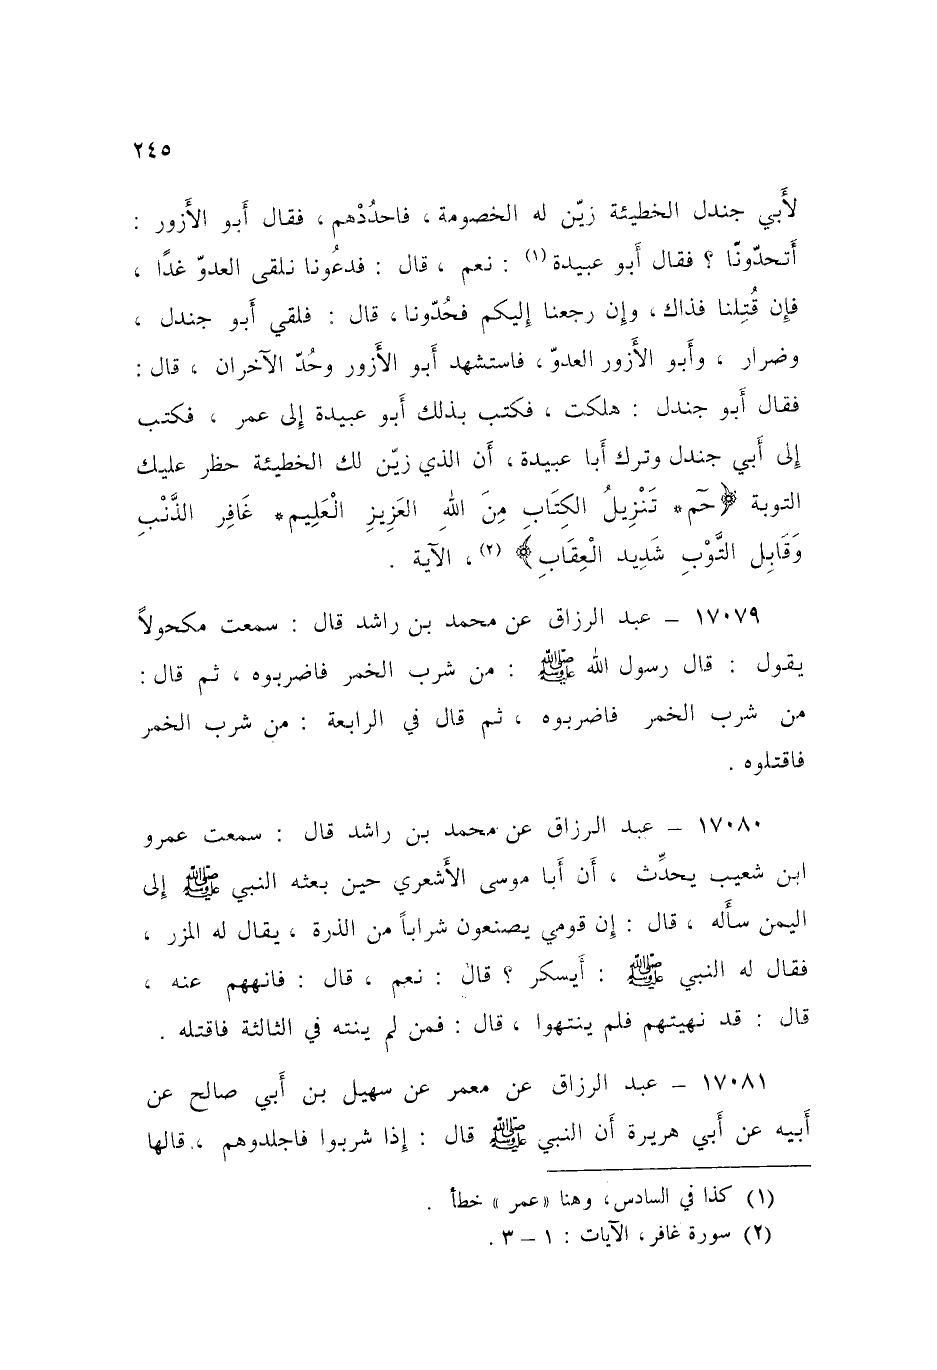 ٢٤٥
لأَبي جندل الخطيئة زيّن له الخصومة ، فاحدُدْهم ، فقال أَبو الأَزور :
أَتحدّونّا ؟ فقال أَبو عبيدة (١) : نعم ، قال : فدعُونا نلقى العدوّ غدًا ،
فإن قُتِلنا فذاك ، وإن رجعنا إليكم فحُدّونا ، قال : فلقي أَبو جندل ،
وضرار ، وأَبو الأَزور العدوّ ، فاستشهد أَبو الأَزور وحُدّ الآخران ، قال :
فقال أَبو جندل : هلكت ، فكتب بذلك أَبو عبيدة إلى عمر ، فكتب
إلى أَبي جندل وترك أَبا عبيدة ، أَن الذي زيّن لك الخطيئة حظر عليك
التوبة ﴿حَم* تَنْزِيلُ الكِتَابِ مِنَ اللهِ العَزِيزِ الْعَلِيمِ* غَافِرِ الذَّنْبِ
وَقَابِلِ التَّوْبِ شَدِيدِ الْعِقَابِ﴾ (٢) ، الآية .
١٧٠٧٩ – عبد الرزاق عن محمد بن راشد قال : سمعت مكحولاً
يقول : قال رسول الله ﷺ : من شرب الخمر فاضربوه ، ثم قال :
من شرب الخمر فاضربوه ، ثم قال في الرابعة : من شرب الخمر
فاقتلوه .
١٧٠٨٠ – عبد الرزاق عن محمد بن راشد قال : سمعت عمرو
ابن شعيب يحدِّث ، أَن أَبا موسى الأَشعري حين بعثه النبي ﷺ إلى
اليمن سأَله ، قال : إن قومي يصنعون شراباً من الذرة ، يقال له المزر ،
فقال له النبي ﷺ : أَيسكر ؟ قال : نعم ، قال : فانههم عنه ،
قال : قد نهيتهم فلم ينتهوا ، قال : فمن لم ينته في الثالثة فاقتله .
١٧٠٨١ – عبد الرزاق عن معمر عن سهيل بن أَبي صالح عن
أَبيه عن أَبي هريرة أَن النبي ﷺ قال : إذا شربوا فاجلدوهم ، قالها
(١) كذا في السادس، وهنا «عمر» خطأ .
(٢) سورة غافر، الآيات : ١ – ٣ .